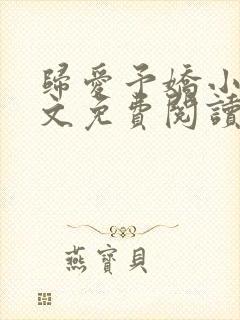 歸愛予嬌小
文免費閱讀
燕寶貝